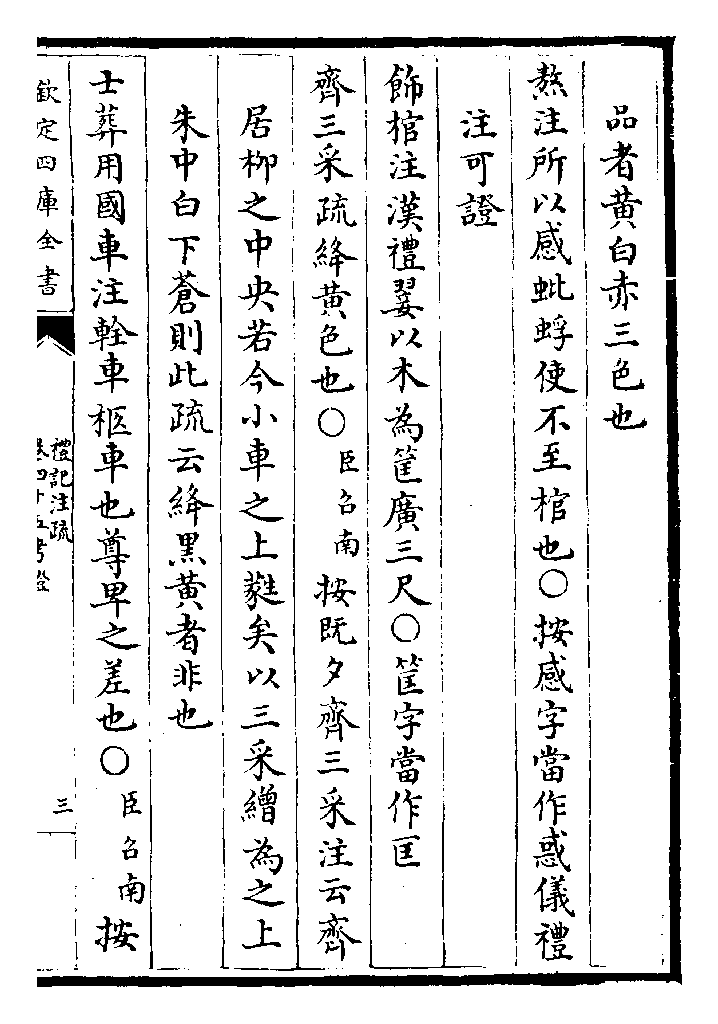 品者黄白赤三色也
熬注所以感蚍蜉使不至棺也○按感字當作惑儀禮
注可證
飾棺注漢禮翣以木為筐廣三尺○筐字當作匡
齊三采疏絳黄色也○臣召南按既夕齊三采注云齊
居柳之中央若今小車之上蕤矣以三采繒為之上
朱中白下蒼則此疏云絳黑黄者非也
士葬用國車注輇車柩車也尊卑之差也○臣召南按
欽定四庫全書
禮記注疏
卷四十五考證
三